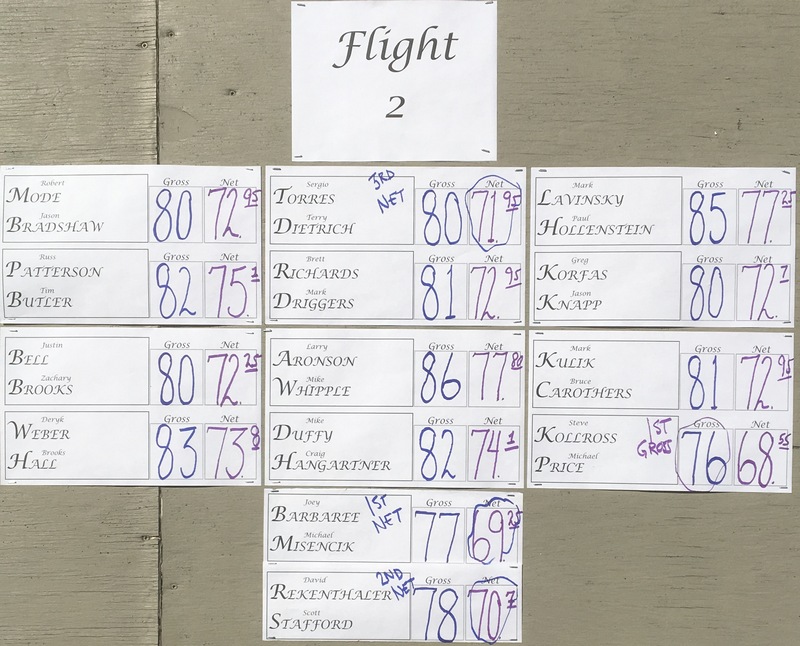 Flight
2
Robert
MODE
Jason
BRADSHAW
Gross Net
80 72.95
Russ
PATTERSON
Tim
BUTLER
Gross Net
82 75.1
Sergio
TORRES
Terry
DIETRICH
3RD
NET
Gross Net
80 71.95
Brett
RICHARDS
Mark
DRIGGERS
Gross Net
81 72.95
Mark
LAVINSKY
Paul
HOLLENSTEIN
Gross Net
85 77.25
Greg
KORFAS
Jason
KNAPP
Gross Net
80 72.7
Justin
BELL
Zachary
BROOKS
Gross Net
80 72.25
Deryk
WEBER
Brooks
HALL
Gross Net
83 73.8
Larry
ARONSON
Mike
WHIPPLE
Gross Net
86 77.80
Mike
DUFFY
Craig
HANGARTNER
Gross Net
82 74.1
Mark
KULIK
Bruce
CAROTHERS
Gross Net
81 72.95
Steve
KOLLROSS
Michael
PRICE
1ST
GROSS
Gross Net
76 68.55
Joey
BARBAREE
Michael
MISENCIK
1ST
NET
Gross Net
77 69.25
David
REKENTHALER
Scott
STAFFORD
2ND
NET
Gross Net
78 70.7